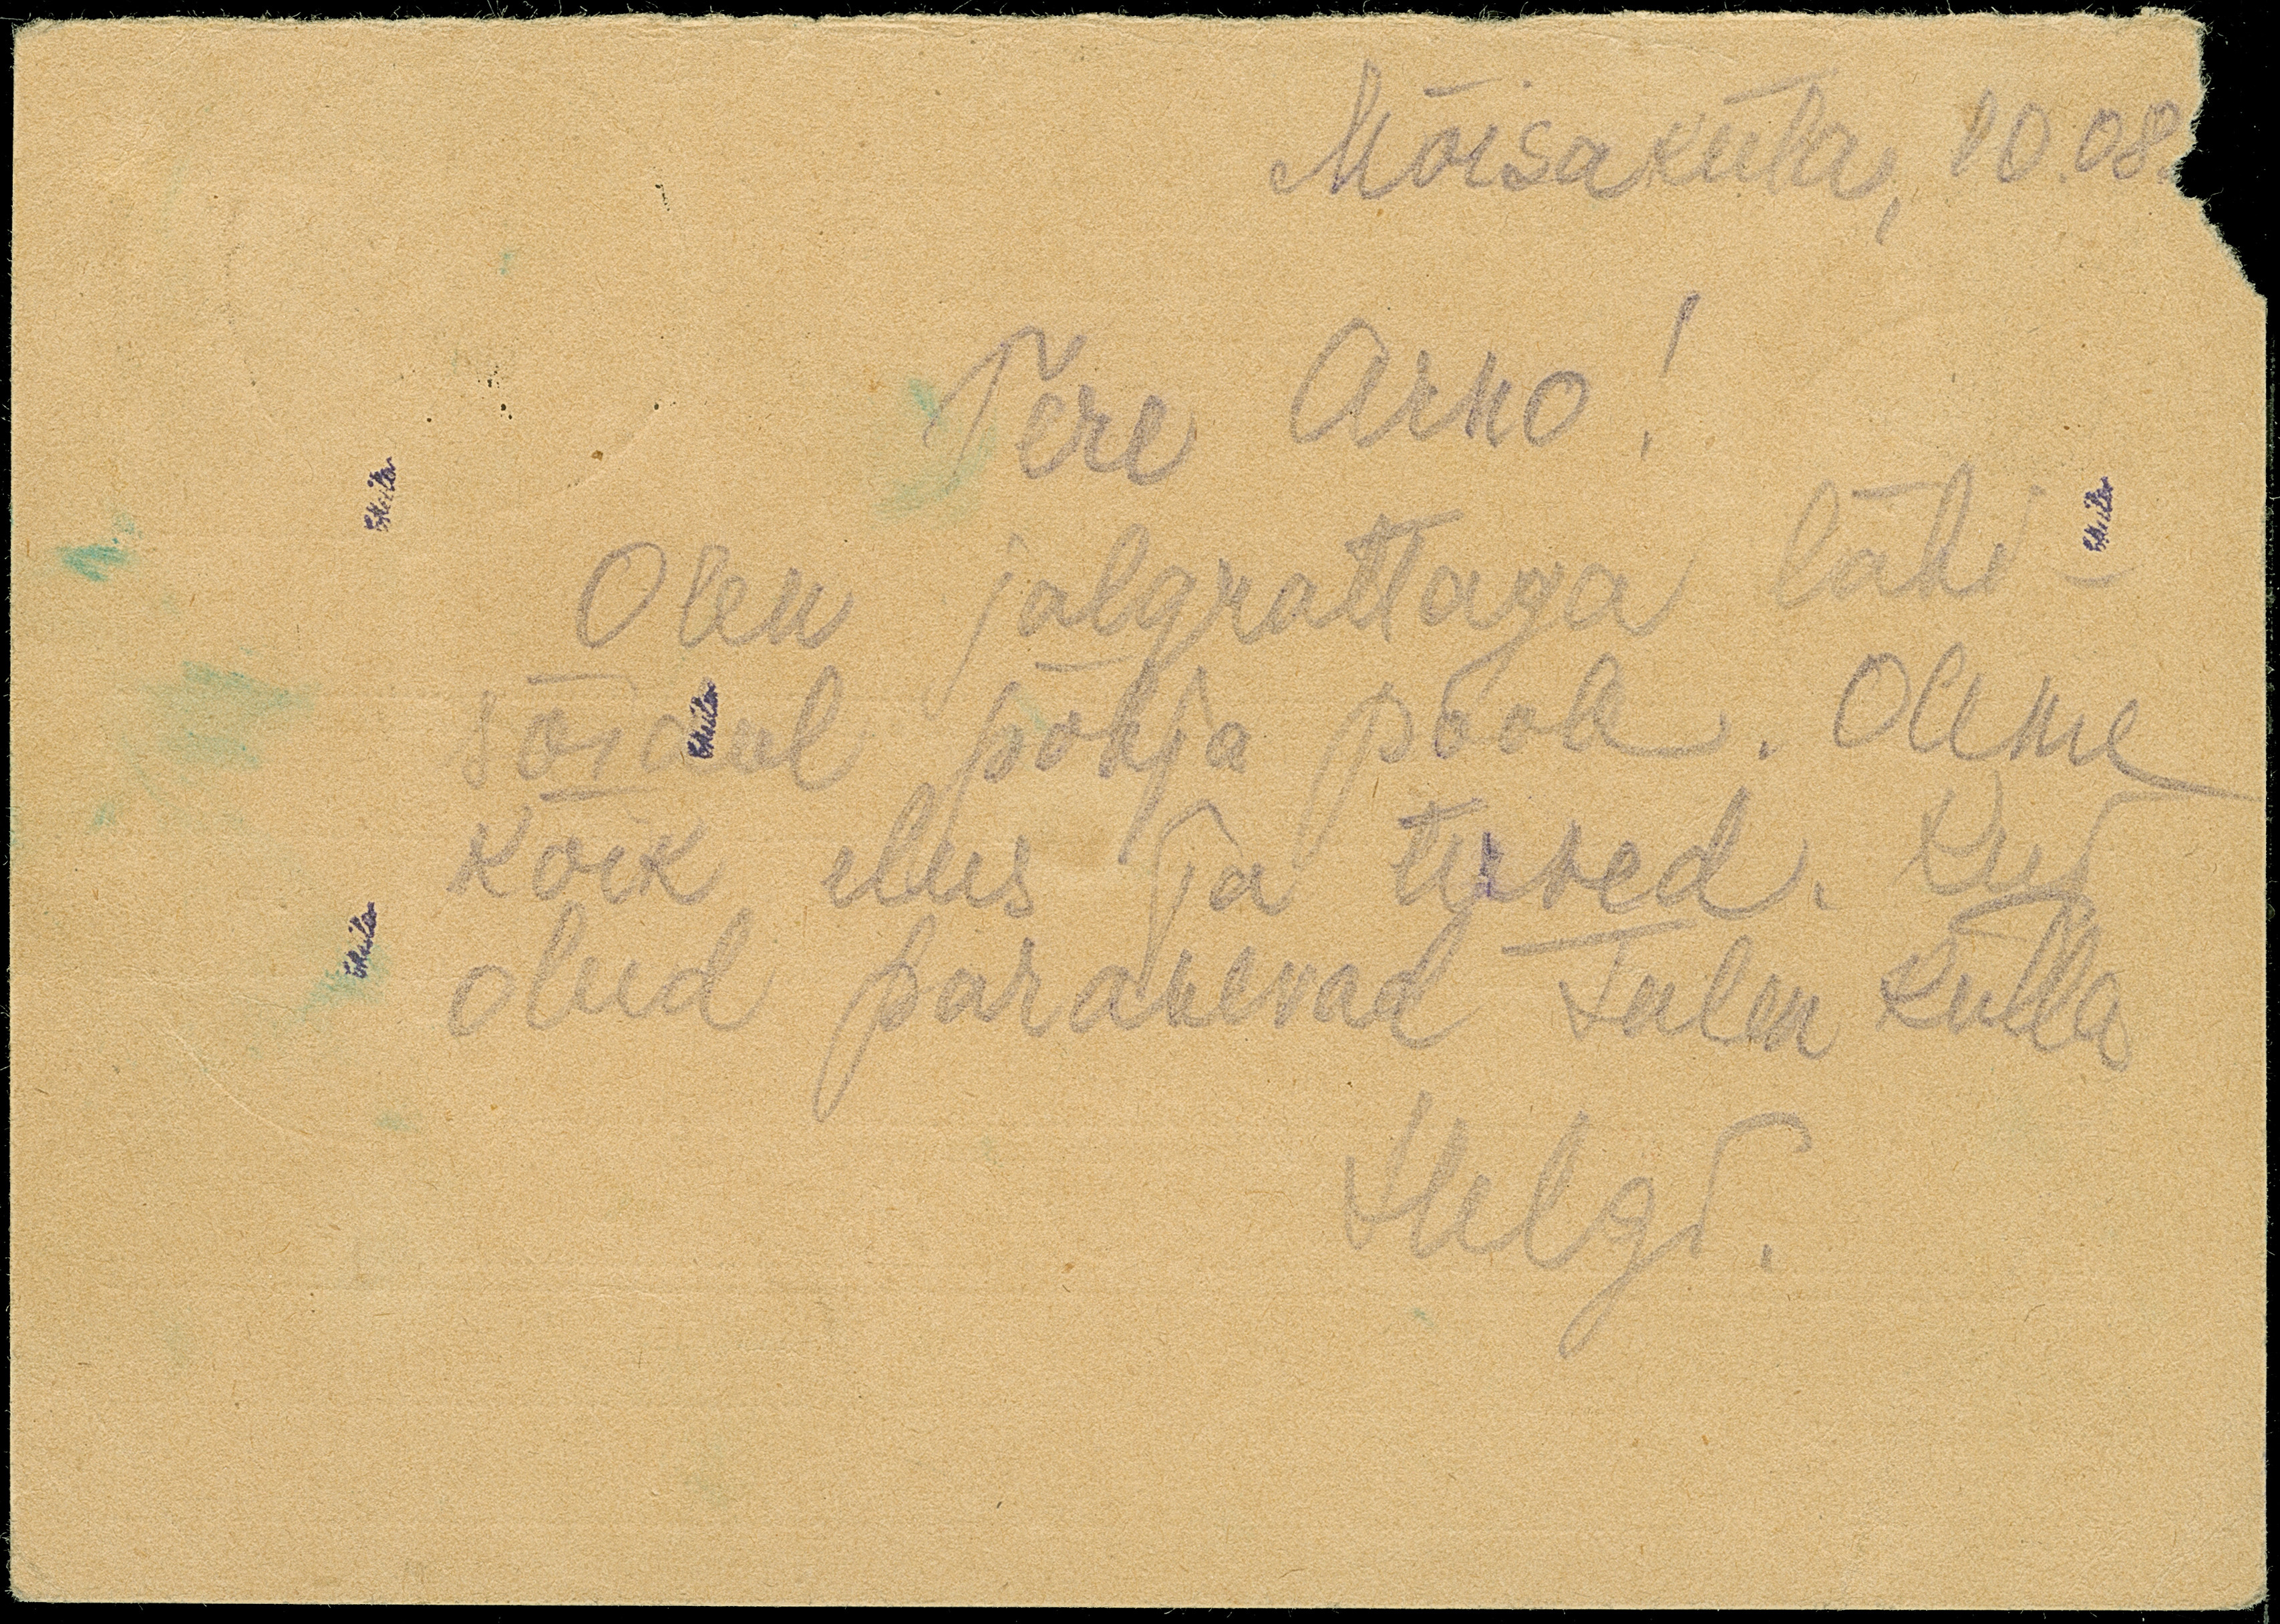 Mõisaküla, 10.08.
Tere Arno!
Olen jalgrattaga läbi-
sõidul põhja poole. Oleme
kõik elus ja terved. Kui
olud paranevad tulen külla
Helgi.